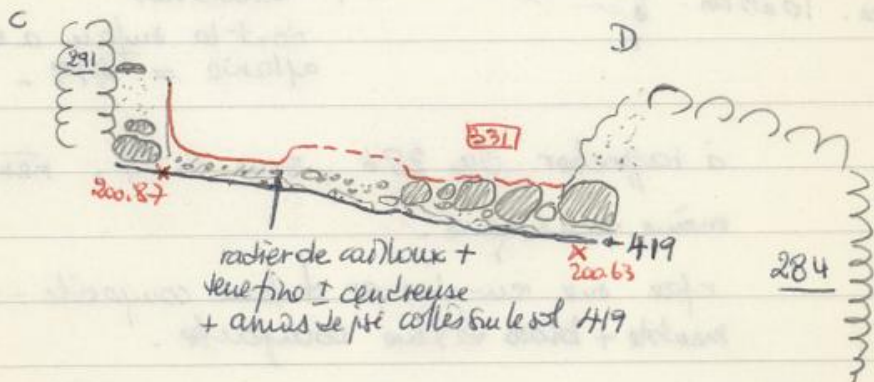 C
D
291
331
200.87
419
200.63
284
radier de cailloux +
terre fine ± cendreuse
+ amas de pisé collés sur le sol 419